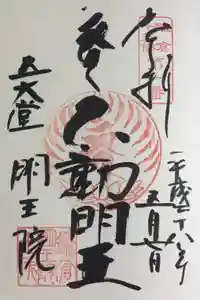 奉拝
平成二十八年
五月七日
不動明王
五大堂
明王院